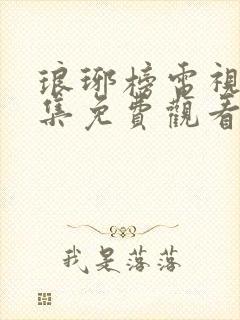 琅琊榜電視
集免費觀看
我是落落